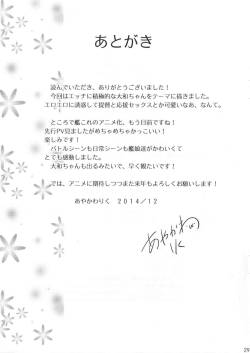 あとがき
読んでいただき、ありがとうございました！
今回はエッチに積極的な大和ちゃんをテーマに描きました。
エロエロに誘惑して提督と応援セックスとか可愛いなあ、なんて。
とうとう艦これのアニメ化、もう目前ですね！
先行PV見ましたがめちゃめちゃかっこいい！
楽しみです！
バトルシーンも日常シーンも艦娘達がかわいくて
とても感動しました。
大和ちゃんも出るみたいで、早く観たいです！
では、アニメに期待しつつまた来年もよろしくお願いします！
あやかわりく 2014/12
あやかわりく
29